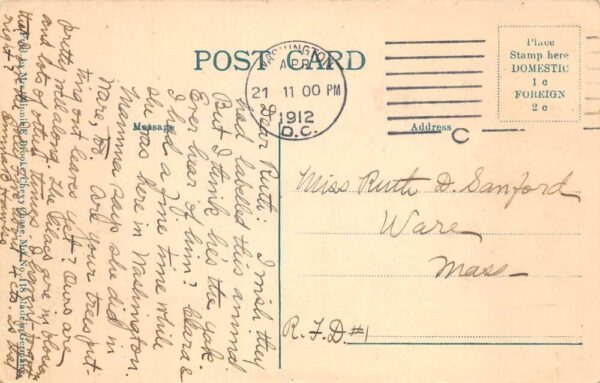 POST CARD
WASHINGTON
APR
21 11 00 PM
1912
D.C.
C
Place
Stamp here
DOMESTIC
1 c
FOREIGN
2 c
Message
Address
Dear Ruth: I wish they
had labelled this animal.
But I think he's the yak.
Ever hear of him? Clara &
I had a fine time while
she was here in Washington.
Mamma says she did in
Ware, too. Are your trees put-
ting out leaves yet? Ours are
pretty well along. The lilacs are in bloom
and lots of other
times I haven't
right?
Miss Ruth D. Sanford
Ware
Mass
R.F.D #1
Made in Germany